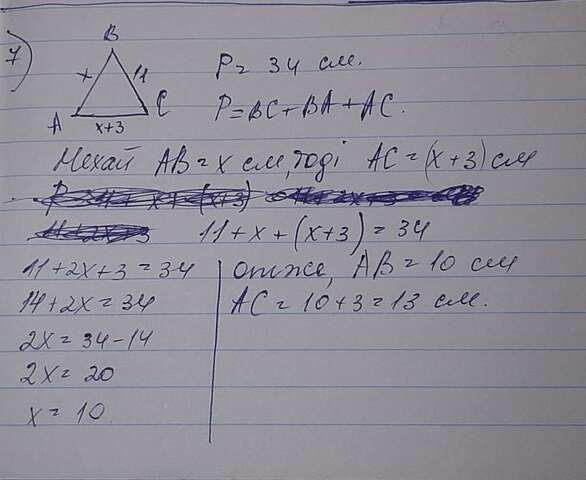 7)
B
x
11
A
C
x+3
P= 34 см.
P=BC+BA+AC.
Нехай AB=x см, тоді AC=(x+3) см
11+x+(x+3)=34
11+2x+3=34
14+2x=34
2x=34-14
2x=20
x=10.
отже, AB=10 см
AC=10+3=13 см.